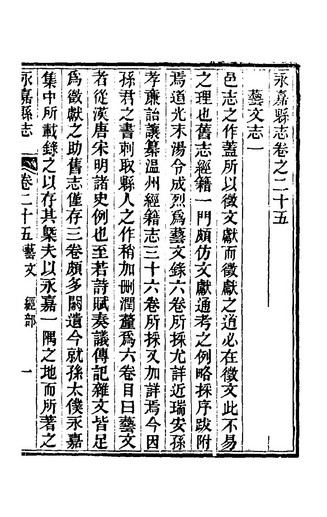 永嘉縣志卷之二十五
藝文志一
邑志之作蓋所以徵文獻而徵獻之道必在徵文此不易
之理也舊志經籍一門頗仿文獻通考之例略採序跋附
焉道光末湯令成烈爲藝文錄六卷所採尤詳近瑞安孫
孝廉詒讓纂溫州經籍志三十六卷所採又加詳焉今因
孫君之書刺取縣人之作稍加刪潤釐爲六卷目曰藝文
者從漢唐宋明諸史例也至若詩賦奏議傳記雜文皆足
爲徵獻之助舊志僅存三卷頗多闕遺今就孫太僕永嘉
集中所載錄之以存其槩夫以永嘉一隅之地而所著之
永嘉縣志
卷二十五藝文 經部
一